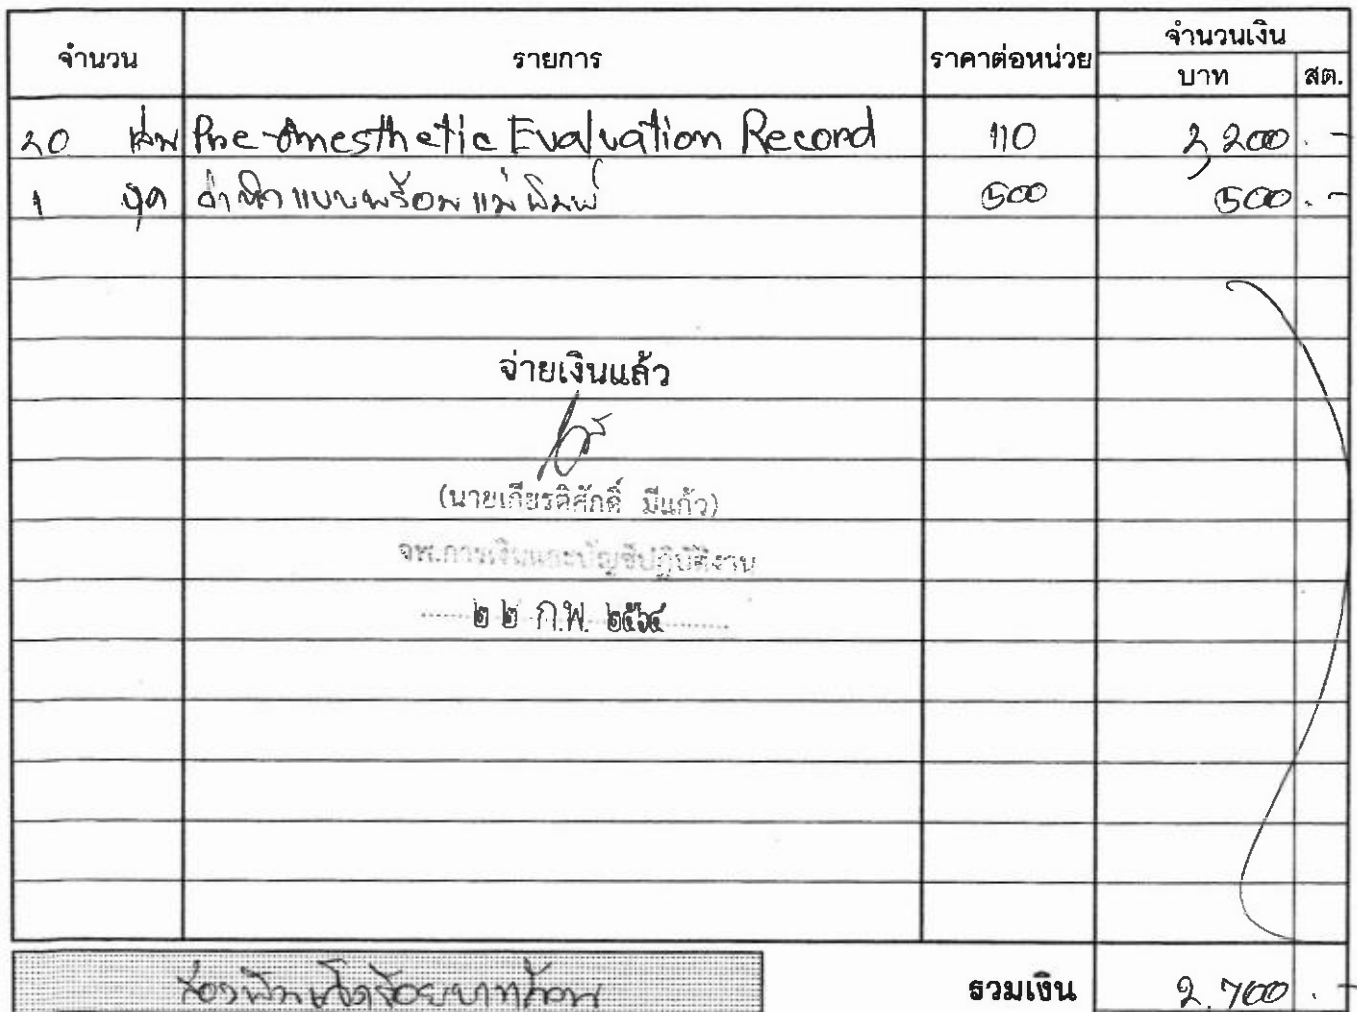 จำนวน รายการ ราคาต่อหน่วย จำนวนเงิน
บาท สต.
20 เล่ม Pre-Anesthetic Evaluation Record 110 2,200.-
1 ชุด ค่าทำแบบพร้อมแม่พิมพ์ 500 500.-
จ่ายเงินแล้ว
(นายเกียรติศักดิ์ มีแก้ว)
จพ.การเงินและบัญชีปฏิบัติงาน
๒๒ ก.พ. ๒๕๖๔
สองพันเจ็ดร้อยบาทถ้วน รวมเงิน 2,700.-